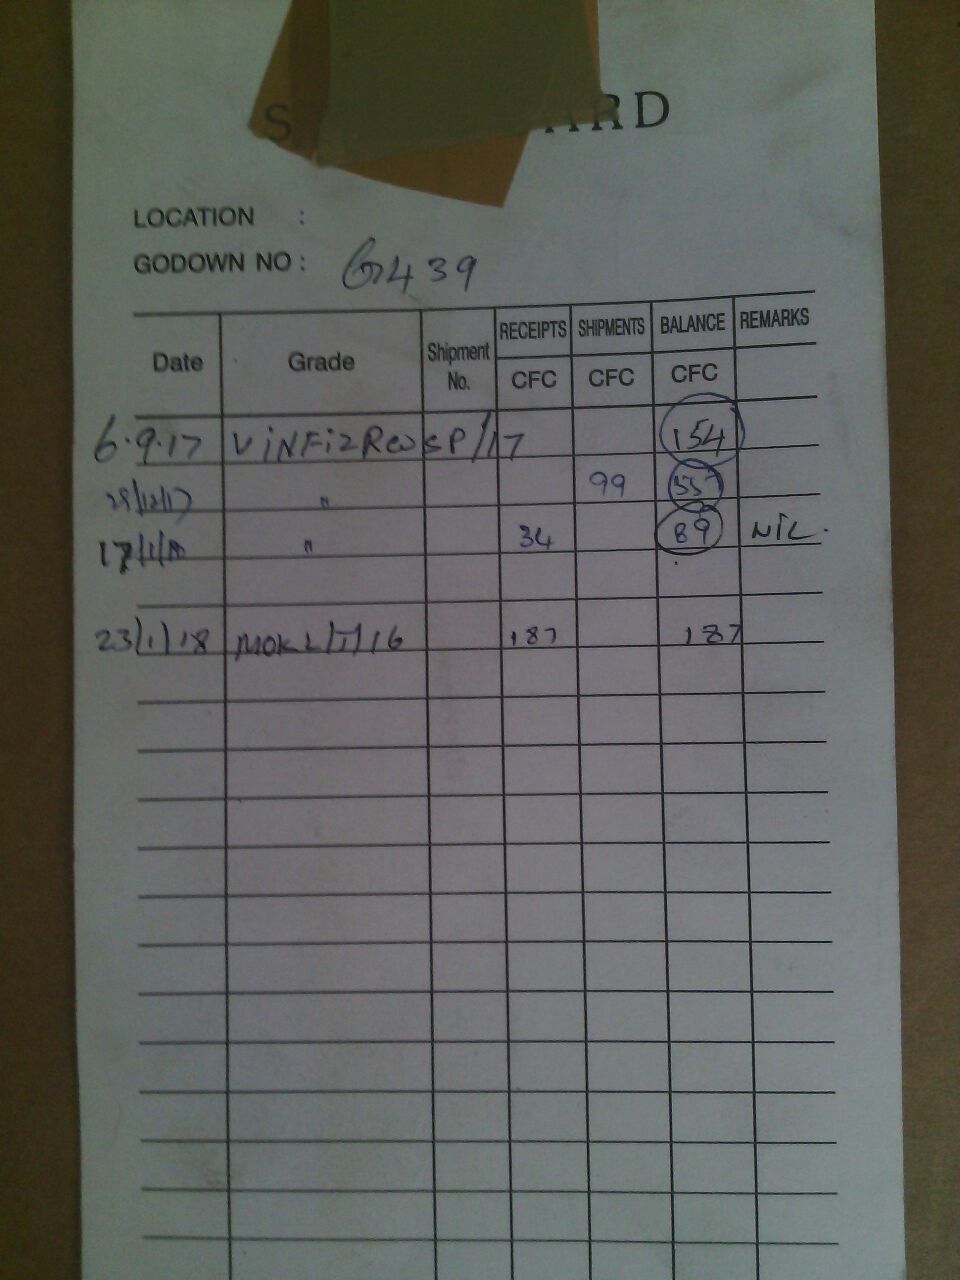 LOCATION :
GODOWN NO : G439
Date Grade Shipment No. RECEIPTS CFC SHIPMENTS CFC BALANCE CFC REMARKS
6.9.17 154
28/12/17 " 99 55
17/1/18 " 34 89 NIL.
23/1/18 187 187